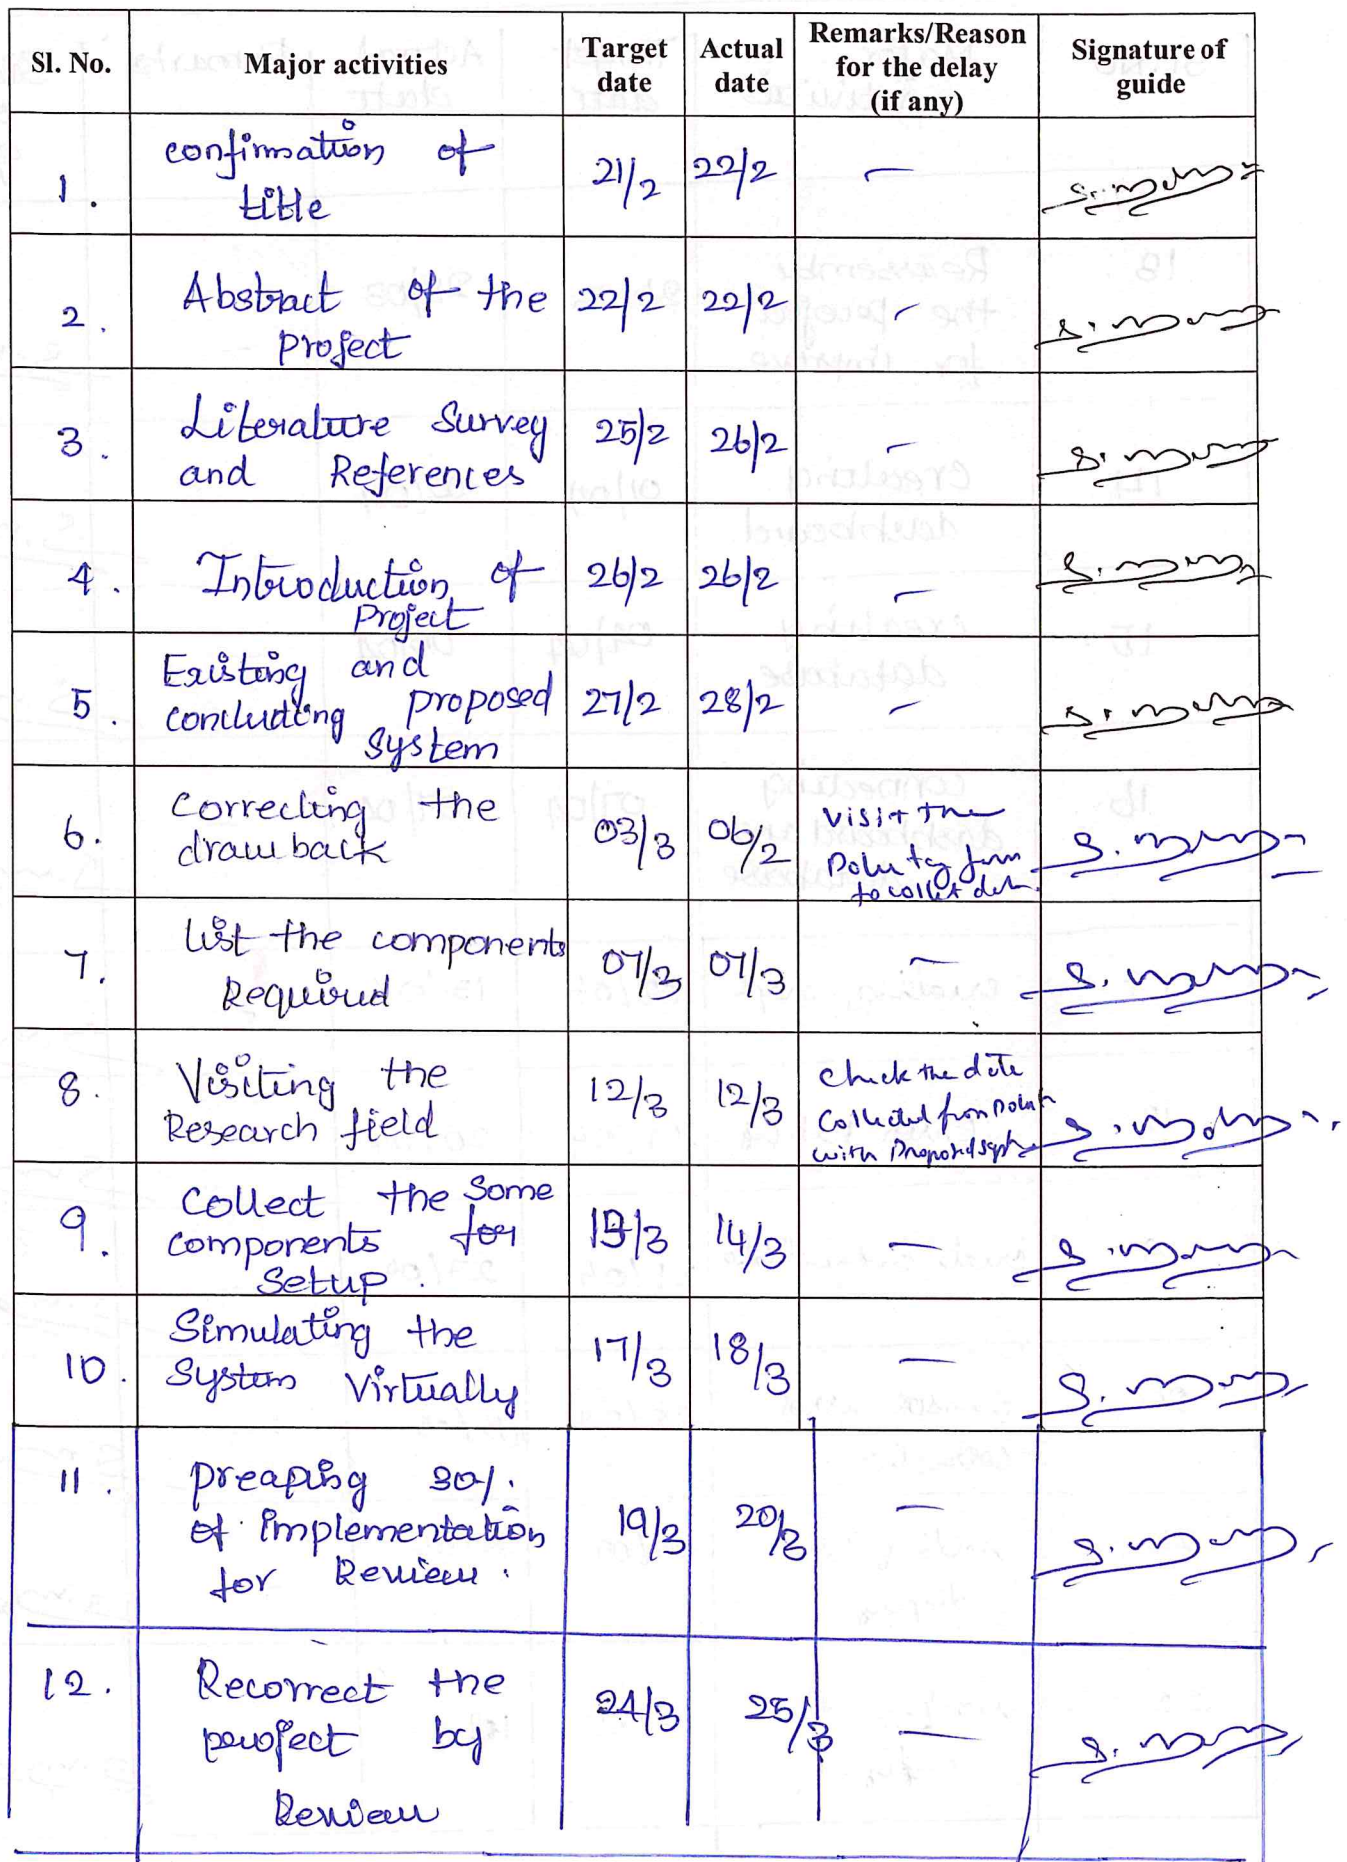 Sl. No. Major activities Target date Actual date Remarks/Reason for the delay (if any) Signature of guide
1. confirmation of title 21/2 22/2 –
2. Abstract of the project 22/2 22/2 –
3. Literature Survey and References 25/2 26/2 –
4. Introduction of Project 26/2 26/2 –
5. Existing and concluding proposed system 27/2 28/2 –
6. Correcting the drawback 03/3 06/2 visit the farm to collect
7. List the components Required 07/3 07/3 –
8. Visiting the Research field 12/3 12/3 check the collected from with
9. Collect the some components for setup. 14/3 –
10. Simulating the system virtually 17/3 18/3 –
11. preaping 30/. of implementation for Review. 19/3 20/3 –
12. Recorrect the project by Review 24/3 25/3 –